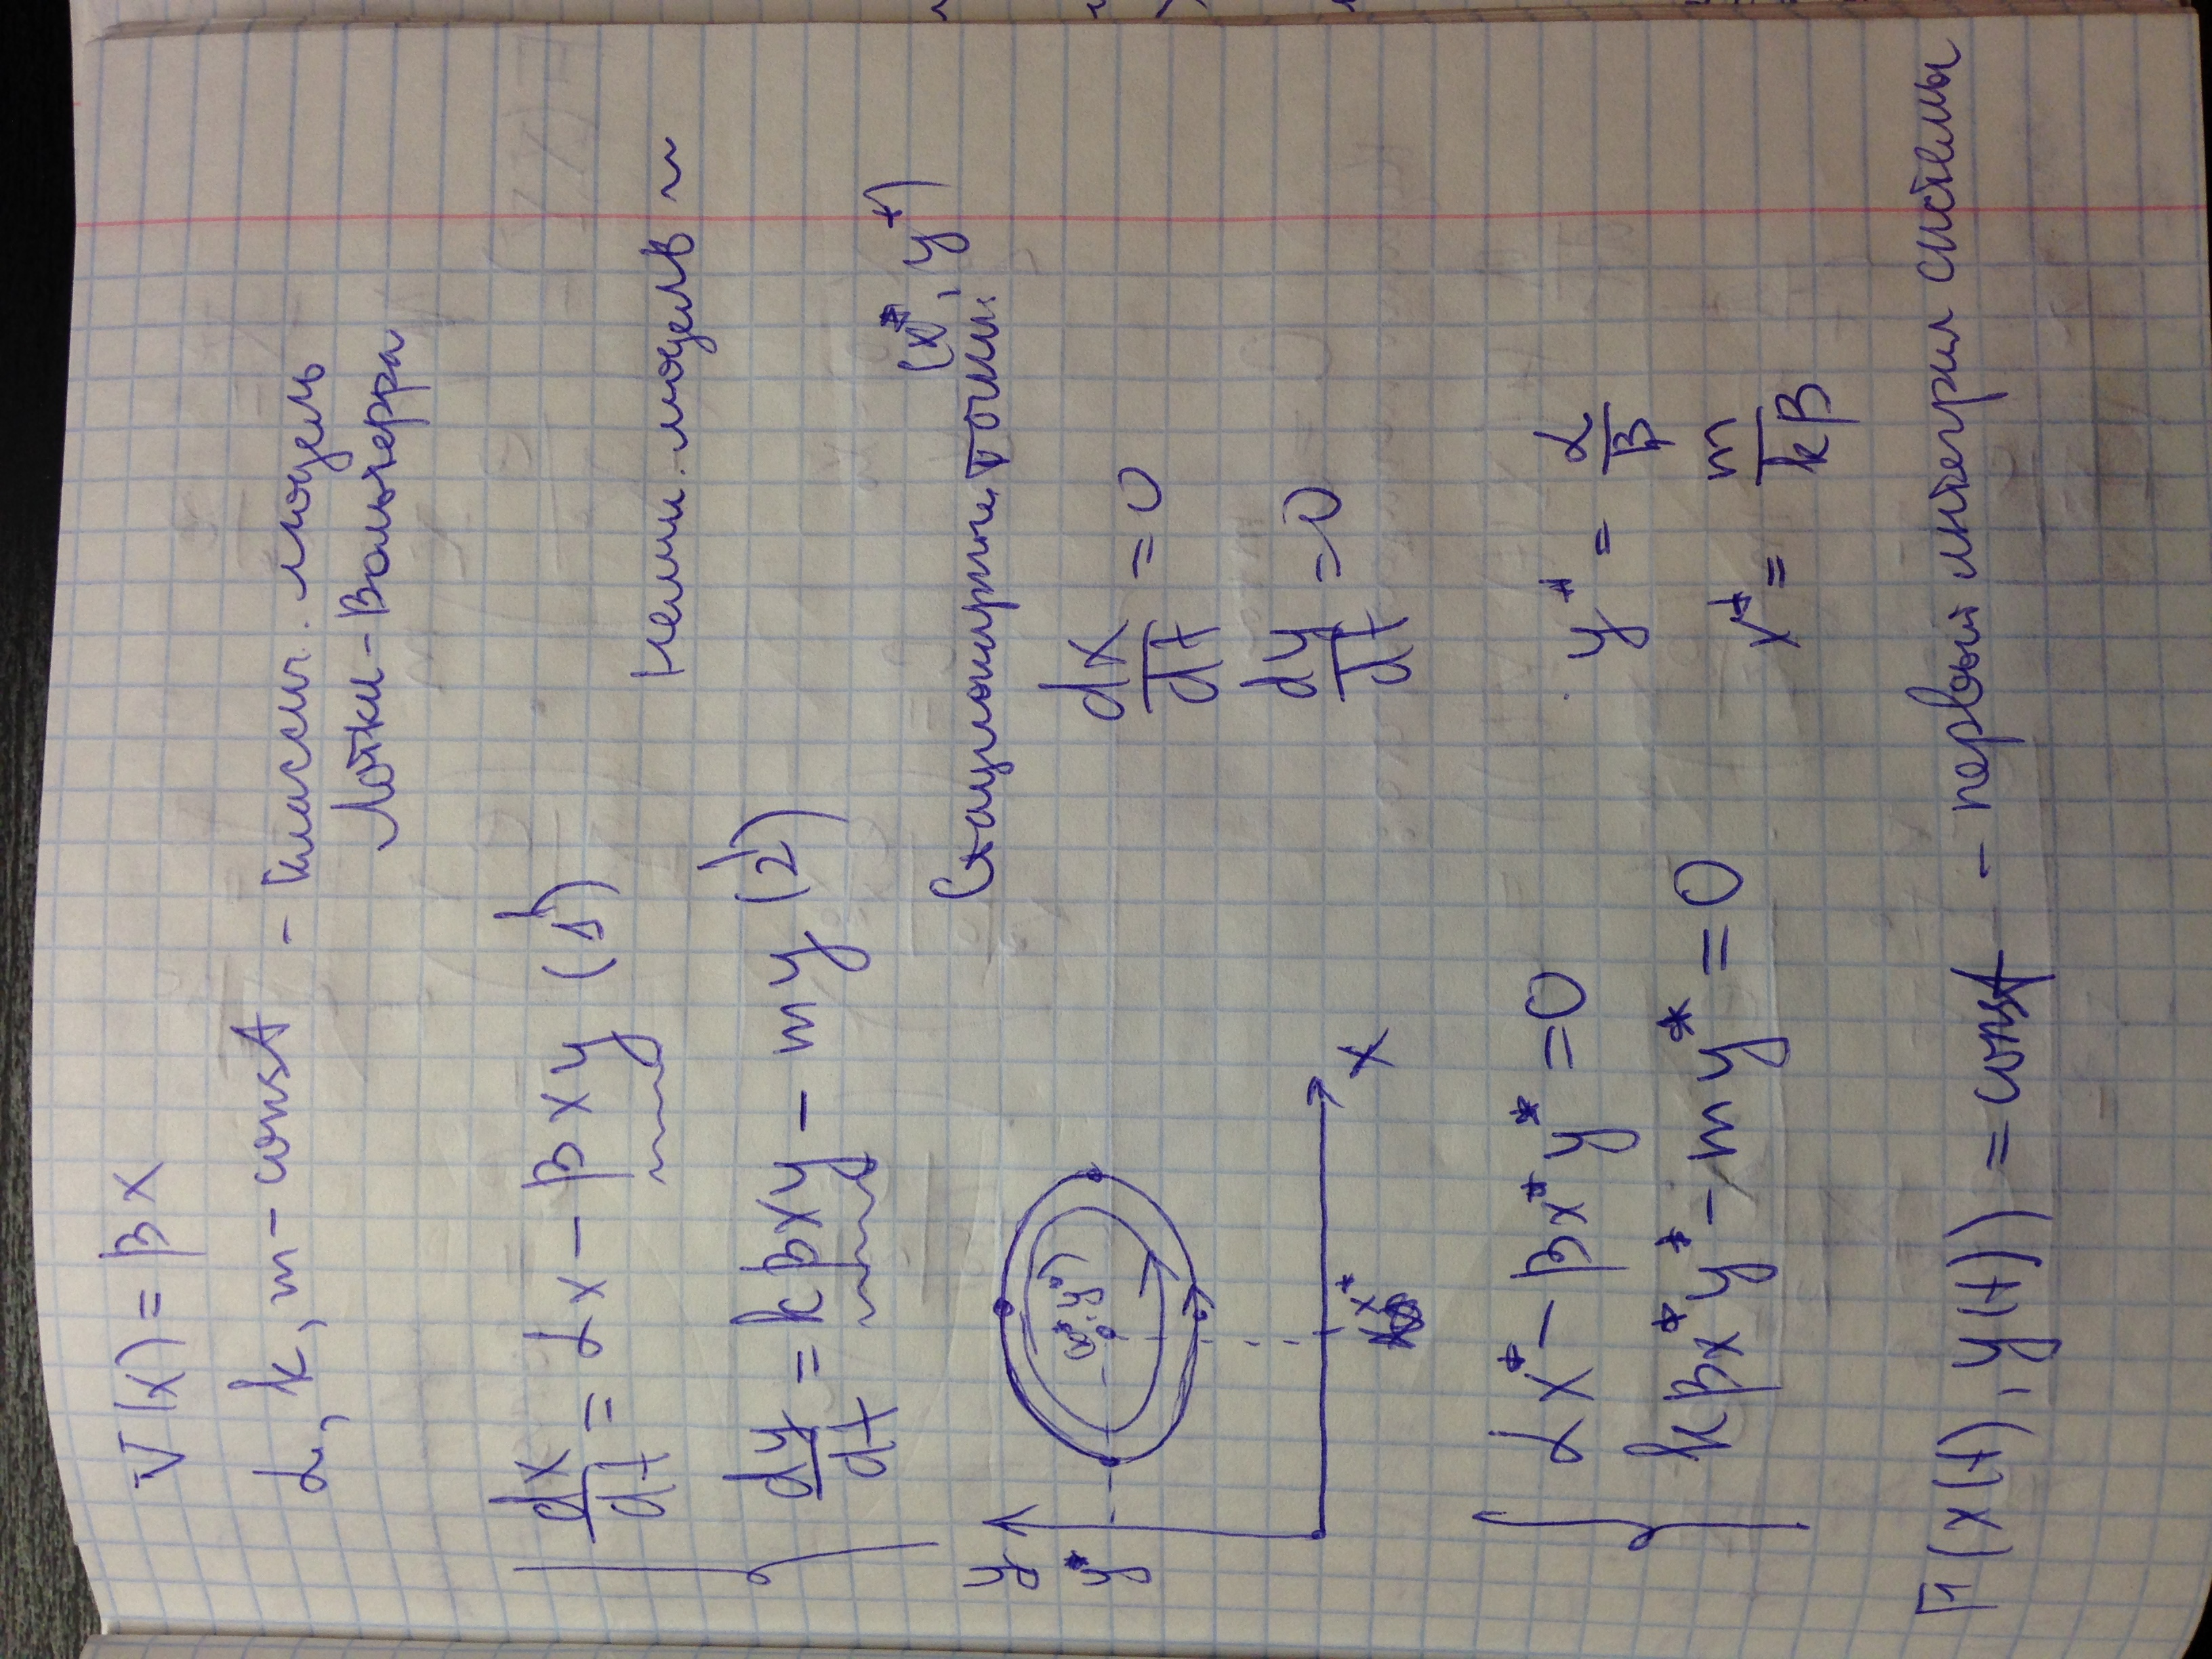 V(x) = βx
α, k, m - const - класич. модель
Лотки-Вольтерра
dx/dt = αx - βxy (1)
dy/dt = kβxy - my (2)
y
y*
(x*, y*)
x*
x
Стационарные точки (x*, y*)
dx/dt = 0
dy/dt = 0
αx* - βx*y* = 0
y* = α/β
kβx*y* - my* = 0
x* = m/kβ
F(x(t), y(t)) = const - первый интеграл системы